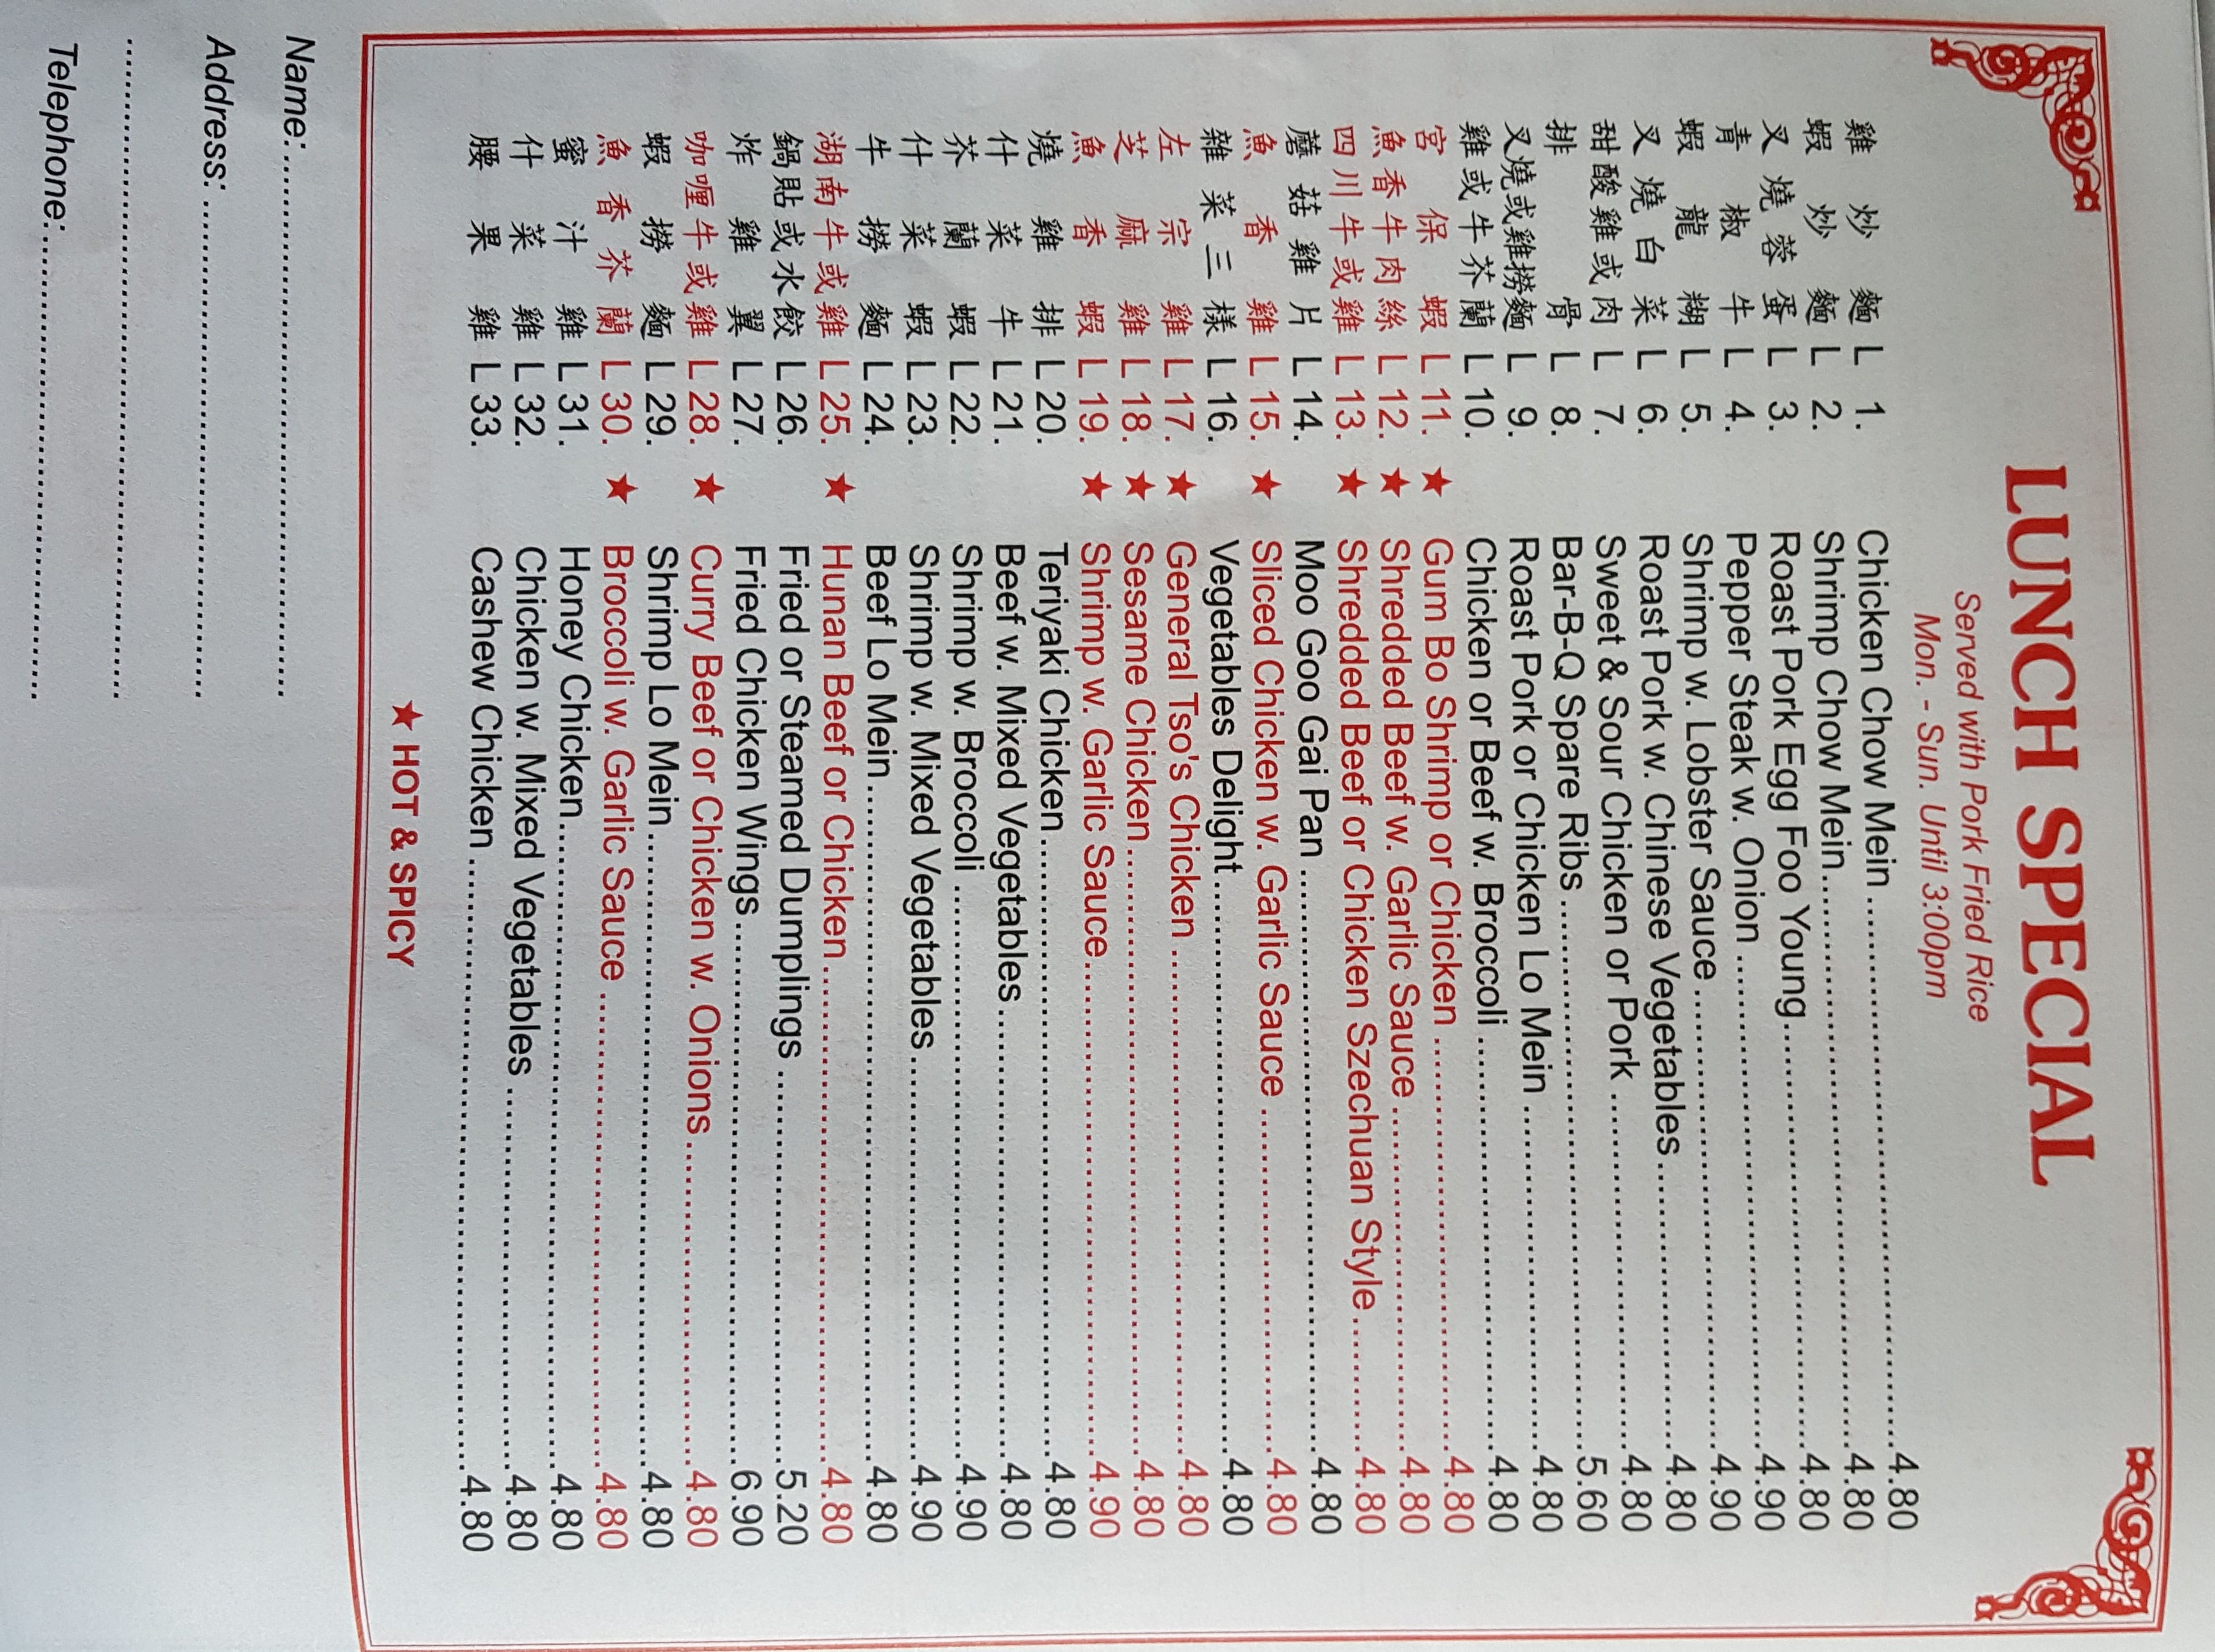 LUNCH SPECIAL
Served with Pork Fried Rice
Mon. - Sun. Until 3:00pm
雞炒麵 L 1. Chicken Chow Mein 4.80
蝦炒麵 L 2. Shrimp Chow Mein 4.80
叉燒蓉蛋 L 3. Roast Pork Egg Foo Young 4.80
青椒牛 L 4. Pepper Steak w. Onion 4.90
蝦龍糊 L 5. Shrimp w. Lobster Sauce 4.90
叉燒白菜 L 6. Roast Pork w. Chinese Vegetables 4.80
甜酸雞或肉 L 7. Sweet & Sour Chicken or Pork 4.80
排骨 L 8. Bar-B-Q Spare Ribs 5.60
叉燒或雞撈麵 L 9. Roast Pork or Chicken Lo Mein 4.80
雞或牛芥蘭 L 10. Chicken or Beef w. Broccoli 4.80
宮保蝦 L 11. ★ Gum Bo Shrimp or Chicken 4.80
魚香牛肉絲 L 12. ★ Shredded Beef w. Garlic Sauce 4.80
四川牛或雞 L 13. ★ Shredded Beef or Chicken Szechuan Style 4.80
蘑菇雞片 L 14. Moo Goo Gai Pan 4.80
魚香雞 L 15. ★ Sliced Chicken w. Garlic Sauce 4.80
雜菜三樣 L 16. Vegetables Delight 4.80
左宗雞 L 17. ★ General Tso's Chicken 4.80
芝麻雞 L 18. ★ Sesame Chicken 4.80
魚香蝦 L 19. ★ Shrimp w. Garlic Sauce 4.90
燒雞排 L 20. Teriyaki Chicken 4.80
什菜牛 L 21. Beef w. Mixed Vegetables 4.80
芥蘭蝦 L 22. Shrimp w. Broccoli 4.90
什菜蝦 L 23. Shrimp w. Mixed Vegetables 4.90
牛撈麵 L 24. Beef Lo Mein 4.80
湖南牛或雞 L 25. ★ Hunan Beef or Chicken 4.80
鍋貼或水餃 L 26. Fried or Steamed Dumplings 5.20
炸雞翼 L 27. Fried Chicken Wings 6.90
咖喱牛或雞 L 28. ★ Curry Beef or Chicken w. Onions 4.80
蝦撈麵 L 29. Shrimp Lo Mein 4.80
魚香芥蘭 L 30. ★ Broccoli w. Garlic Sauce 4.80
蜜汁雞 L 31. Honey Chicken 4.80
什菜雞 L 32. Chicken w. Mixed Vegetables 4.80
腰果雞 L 33. Cashew Chicken 4.80
★ HOT & SPICY
Name:
Address:
Telephone: